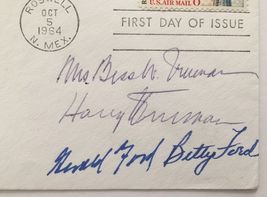 ROSWELL
OCT
5
1964
N. MEX.
U.S. AIR MAIL
FIRST DAY OF ISSUE
Mrs. Bess W. Truman
Harry Truman
Gerald Ford Betty Ford